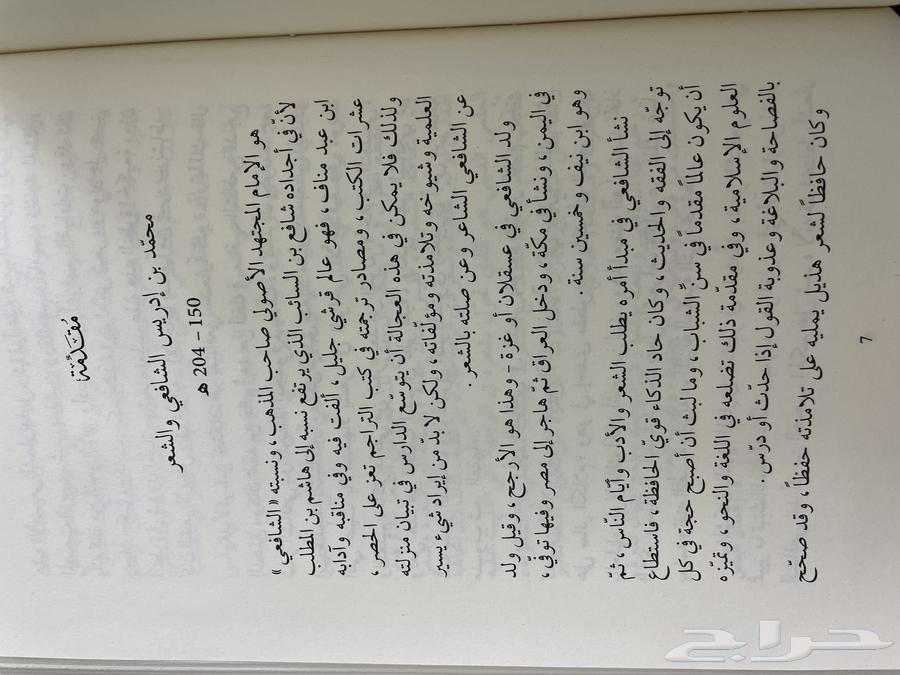 مُقَدّمَة
محمّد بن إدريس الشافعي والشعر
150 – 204 هـ
هو الإمام المجتهد الأصولي صاحب المذهب، ونسبته «الشافعي»
لأنّ في أجداده شافع بن السائب الذي يرتفع نسبه إلى هاشم بن المطلب
ابن عبد مناف، فهو عالم قرشي جليل، ألفت فيه وفي مناقبه وآدابه
عشرات الكتب، ومصادر ترجمته في كتب التراجم تعز على الحصر،
ولذلك فلا يمكن في هذه العجالة أن يتوسّع الدارس في تبيان منزلته
العلمية وشيوخه وتلامذته ومؤلّفاته، ولكن لا بدّ من إيراد شيء يسير
عن الشافعي الشاعر وعن صلته بالشعر.
ولد الشافعي في عسقلان أو غزة – وهذا هو الأرجح، وقيل ولد
في اليمن، ونشأ في مكّة، ودخل العراق ثمّ هاجر إلى مصر وفيها توفّي،
وهو ابن نيف وخمسين سنة.
نشأ الشافعي في مبدأ أمره يطلب الشعر والأدب وأيّام النّاس، ثمّ
توجّه إلى الفقه والحديث، وكان حاد الذكاء قويّ الحافظة، فاستطاع
أن يكون عالماً مقدماً في سنّ الشباب، وما لبث أن أصبح حجة في كل
العلوم الإسلامية، وفي مقدّمة ذلك تضلعه في اللغة والنحو، وتميّزه
بالفصاحة والبلاغة وعذوبة القول إذا حدّث أو درّس.
وكان حافظاً لشعر هذيل يمليه على تلامذته حفظاً، وقد صحّح
7
حراج